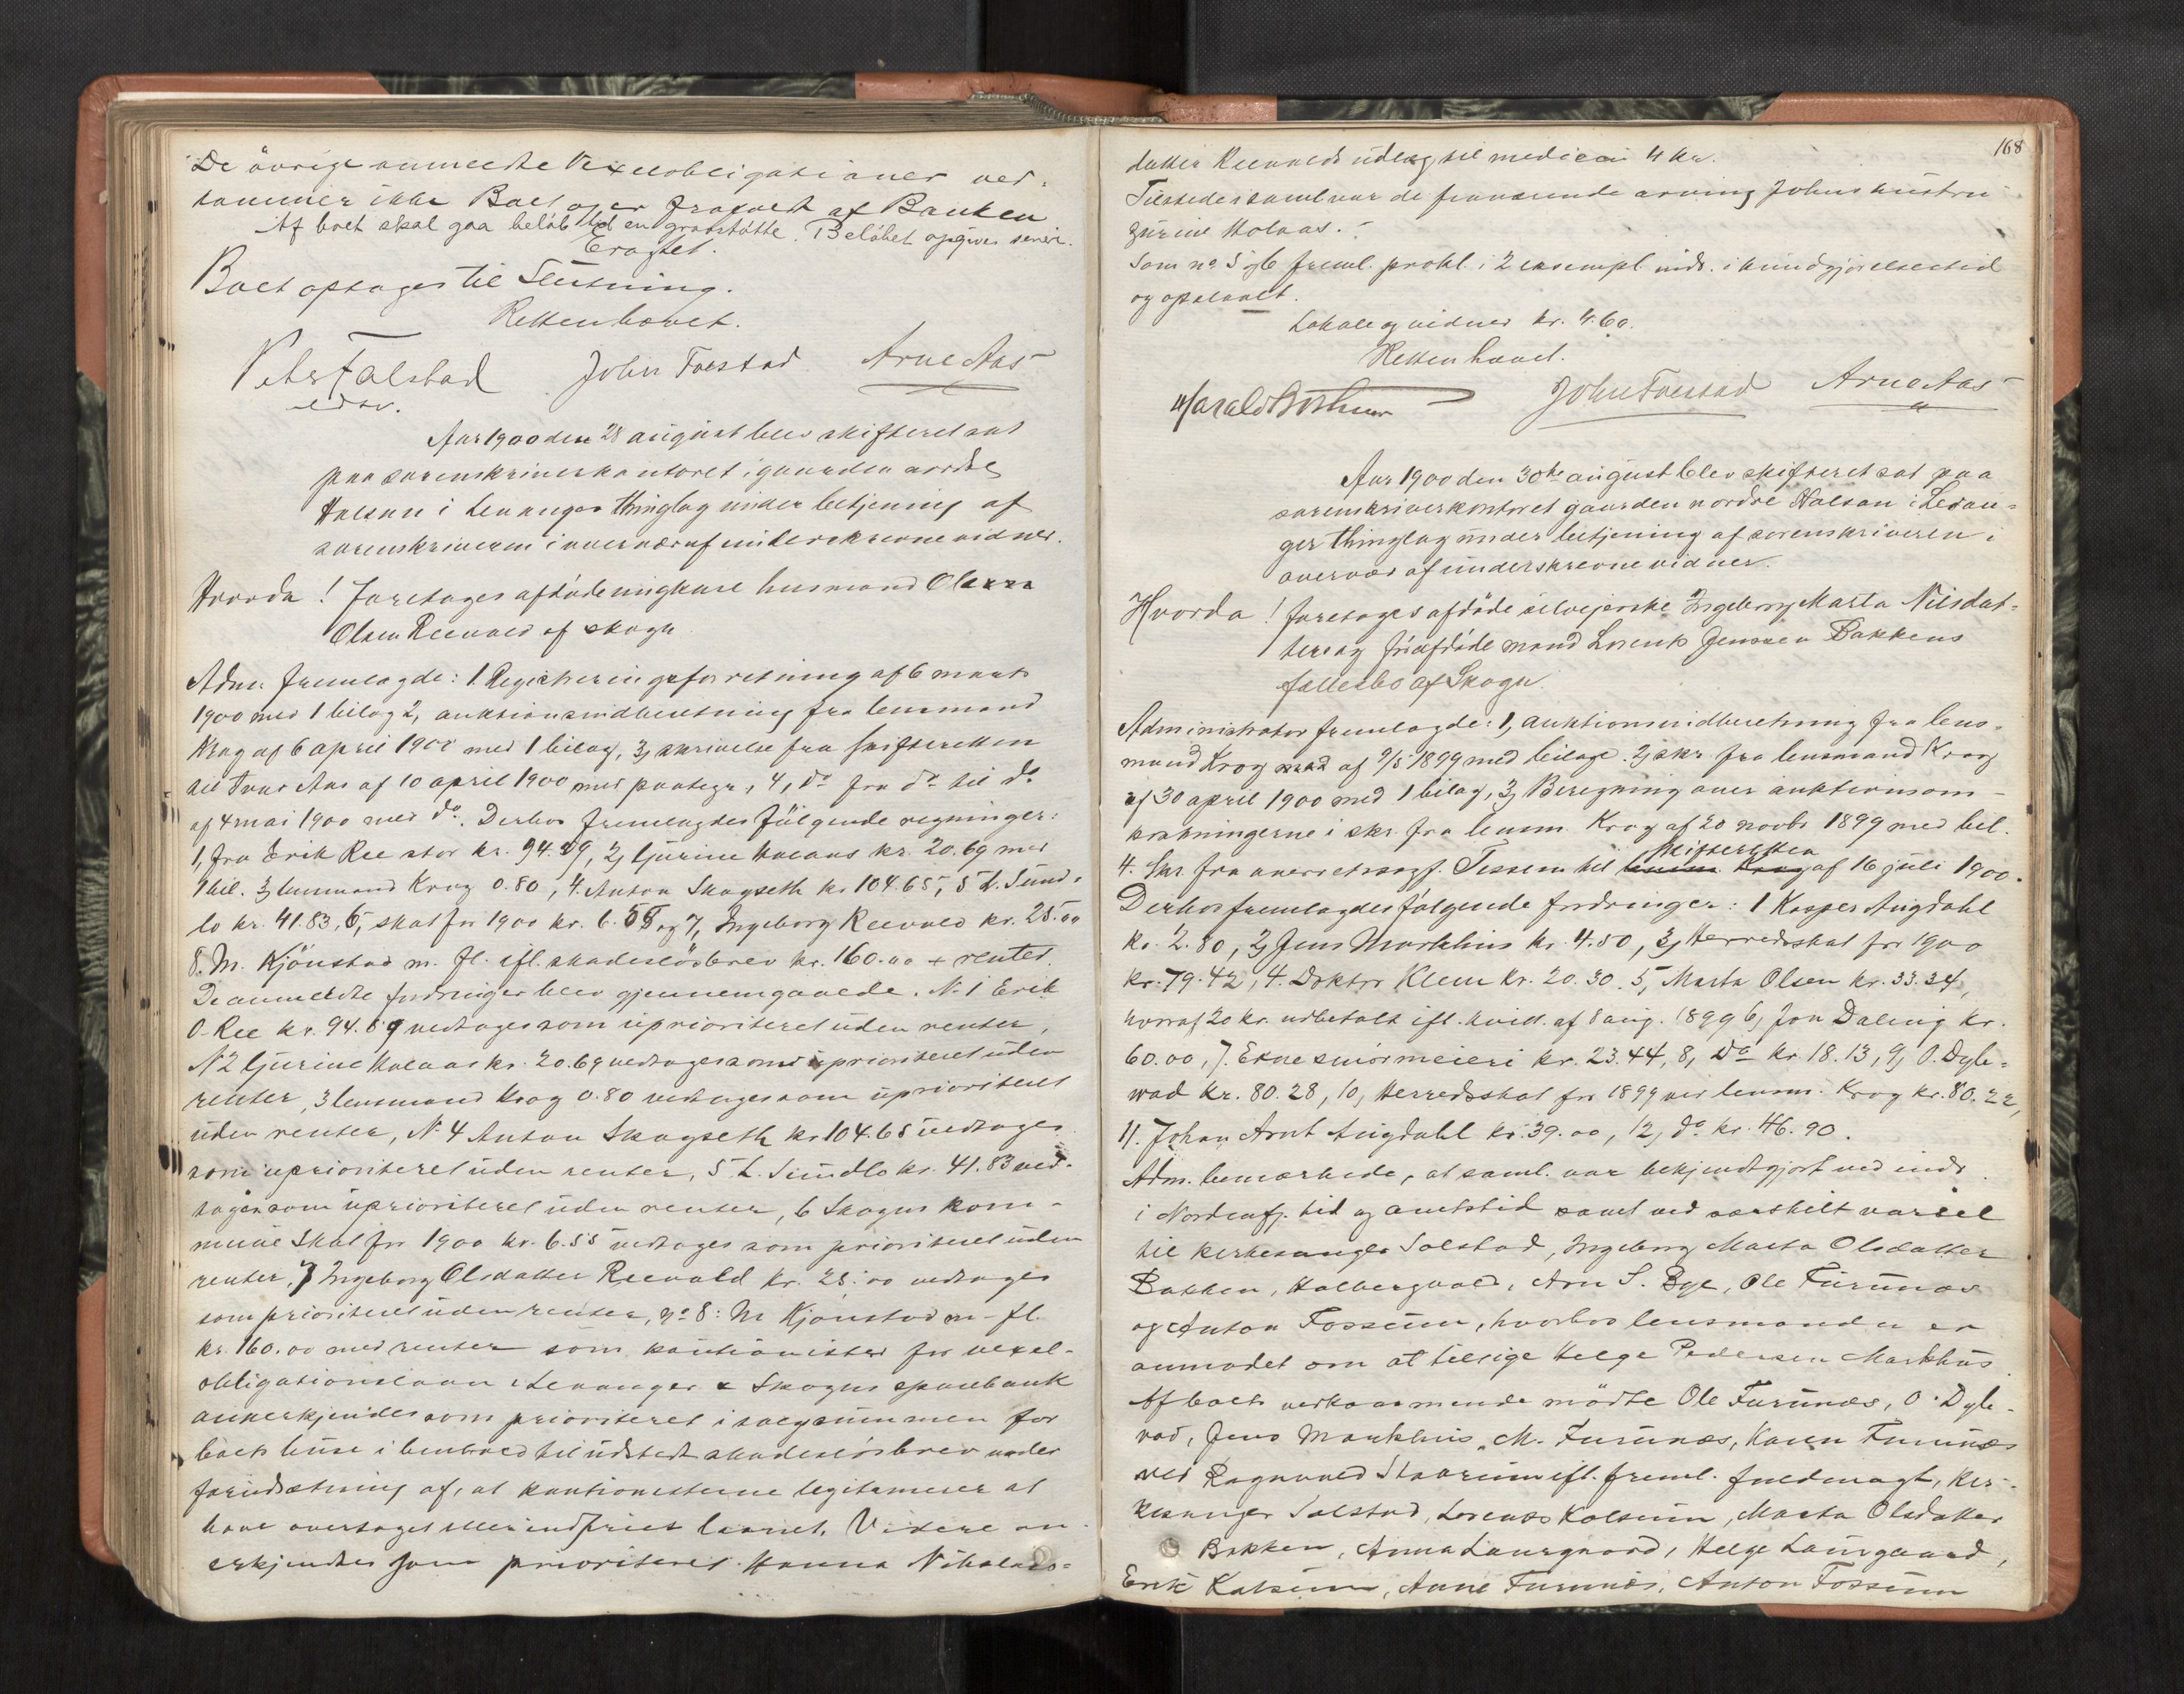 De övrige anmeldte Vexelobligationer ved-
kommer ikke Boet og er frafaldt af Banken
Af boet skal gaa beløb til en gravstøtte. Beløbet opgives senere.
Eragtet.
Boet optages til Slutning.
Retten hævet.
Peter Falstad John Forstad Arne Aas
edsv.
Aar 1900 den 28 august blev skifteret sat
paa sorenskriverkontoret i gaarden nordre
Halsan i Levanger thinglag under betjening af
sorenskriveren i overvær af underskrevne vidner.
Hvorda! Foretages afdöde ungkarl husmand
Olsen Reevold af Skogn
Adm. fremlagde: 1. Registreringsforretning af 6 marts
1900 med 1 bilag 2, auktionsindberetning fra lensmand
Krog af 6 april 1900 med 1 bilag, 3, skrivelse fra skifteretten
til Aas af 10 april 1900 med paategn, 4, do fra do til do
af 4 mai 1900 med do. Derhos fremlagdes fölgende regninger:
1, fra Erik Ree stor kr. 94.89, 2, Gurine Holaas kr. 20.69 med
1 bil. 3, lensmand Krog 0.80, 4. Anton Skogseth kr 104.65, 5 L. Sund-
lo kr. 41.83, 6, skat for 1900 kr. 6.55 og 7, Ingeborg Reevold kr. 25.00
8. M. Kjönstad m. fl. ifl. skadeslösbrev kr. 160.00 + renter.
De anmeldte fordringer blev gjennemgaaede. N. 1 Erik
O. Ree kr. 94.89 vedtages som uprioriteret uden renter,
N 2 Gurine Holaas kr. 20.69 vedtages som uprioriteret uden
renter, 3 lensmand Krog 0.80 vedtages som uprioriteret
uden renter, N. 4 Anton Skogseth kr 104.65 vedtages
som uprioriteret uden renter, 5 L. Sundlo kr. 41.83 ved-
tages som uprioriteret uden renter, 6 Skogns kom-
mune Skat for 1900 kr. 6.55 vedtages som prioriteret uden
renter, 7 Ingeborg Olsdatter Reevold kr. 25.00 vedtages
som prioriteret uden renter, no 8: M Kjönstad m. fl.
kr. 160.00 med renter som kautionister for vexel-
obligationslaan i Levanger & Skogns sparebank
anerkjendes som prioriteret i salgssummen for
boets huse i henhold til udstedt skadeslösbrev under
forudsætning af, at kautionisterne legitimerer at
have overtaget eller indfriet laanet. Videre an-
erkjendtes som prioriteret Hanna Nikolais-
168
datter Reevolds udlæg til medicin 4 kr.
Tilstede i saml. var de fraværende arving Johns hustru
Gurine Holaas.
Som no 5 og 6 freml. prokl. i 2 exempl. inds. i kundgjörelsestid
og opslaaet.
Lokale og vidner kr. 4.60.
Retten hævet.
Harald Bothner John Forstad Arne Aas
Aar 1900 den 30te august blev skifteret sat paa
sorenskriverkontoret gaarden nordre Halsan i Levan-
ger thinglag under betjening af sorenskriveren i
overvær af underskrevne vidner.
Hvorda! foretages afdöde selveierske Ingeborg Marta Nilsdat-
ter og för afdöde mand Lorents Jenssen Bakkens
fællesbo af Skogn.
Administrator fremlagde: 1, auktionsindberetning fra lens-
mand Krog af 9/5 1899 med bilage. 2, skr. fra lensmand Krog
af 30 april 1900 med 1 bilag, 3, Beregning over auktionsom-
kostningerne i skr. fra lensm. Krog af 20 novbr 1899 med bil.
skifteretten
4. Skr. fra overretssagf. Tessem til lensm. Krog af 16 juli 1900.
Derhos fremlagdes fölgende fordringer: 1 Kasper Augdahl
kr. 2.80, 2, Jens Markhus kr. 4.50, 3, Herredsskat for 1900
kr. 79.42, 4. Doktor Klem kr. 20.30. 5, Marta Olsen kr. 33.34,
hvoraf 20 kr. udbetalt ifl. kvitt. af 8 aug. 1899 6, Jon Daling kr.
60.00, 7. Ekne smörmeieri kr. 23.44, 8, Do kr 18.13, 9, O. Dyb-
wad kr. 80.28, 10, Herredsskat for 1899 ved lensm. Krog kr. 80.22,
11. Johan Arnt Augdahl kr. 39.00, 12, do kr. 46.90.
Adm. bemærkede, at saml. var bekjendtgjort ved inds.
i Nordenfj. tid og amtstid samt ved særskilt varsel
til kirkesanger Solstad, Ingeborg Marta Olsdatter
Bakken, Halbergvald, Arn S. Bye, Ole Furunæs
og Anton Fossum, hvorhos lensmanden er
anmodet om at tilsige Helge Pedersen Markhus
Af boets vedkommende mödte Ole Furunæs, O. Dyb-
vad, Jens Markhus, M. Furunæs, Karen Furunæs
ved Ragnvald ifl. freml. fuldmagt, kir-
kesanger Solstad, Lorents Kolsum, Marta Olsdatter
Bakken, Anna Laurgaard, Helge Laurgaard,
Erik Kolsum, Anne Furunæs, Anton Fossum